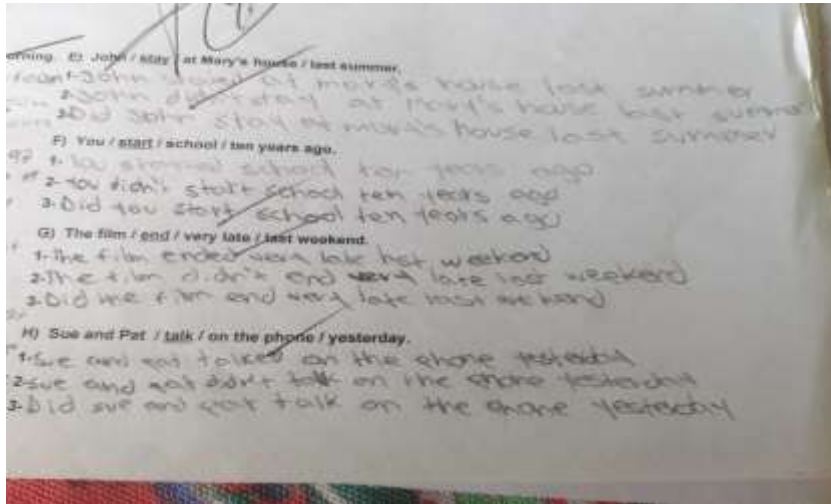 orning. E) John / stay / at Mary's house / last summer.
1-John stayed at mary's house last summer
2-John didn't stay at Mary's house last summer
3-Did John stay at mary's house last summer
F) You / start / school / ten years ago.
1-You started school ten years ago
2-You didn't start school ten years ago
3-Did you start school ten years ago
G) The film / end / very late / last weekend.
1-The film ended very late last weekend
2-The film didn't end very late last weekend
3-Did the film end very late last weekend
H) Sue and Pat / talk / on the phone / yesterday.
1-Sue and pat talked on the phone yesterday
2-Sue and pat didn't talk on the phone yesterday
3-Did sue and pat talk on the phone yesterday